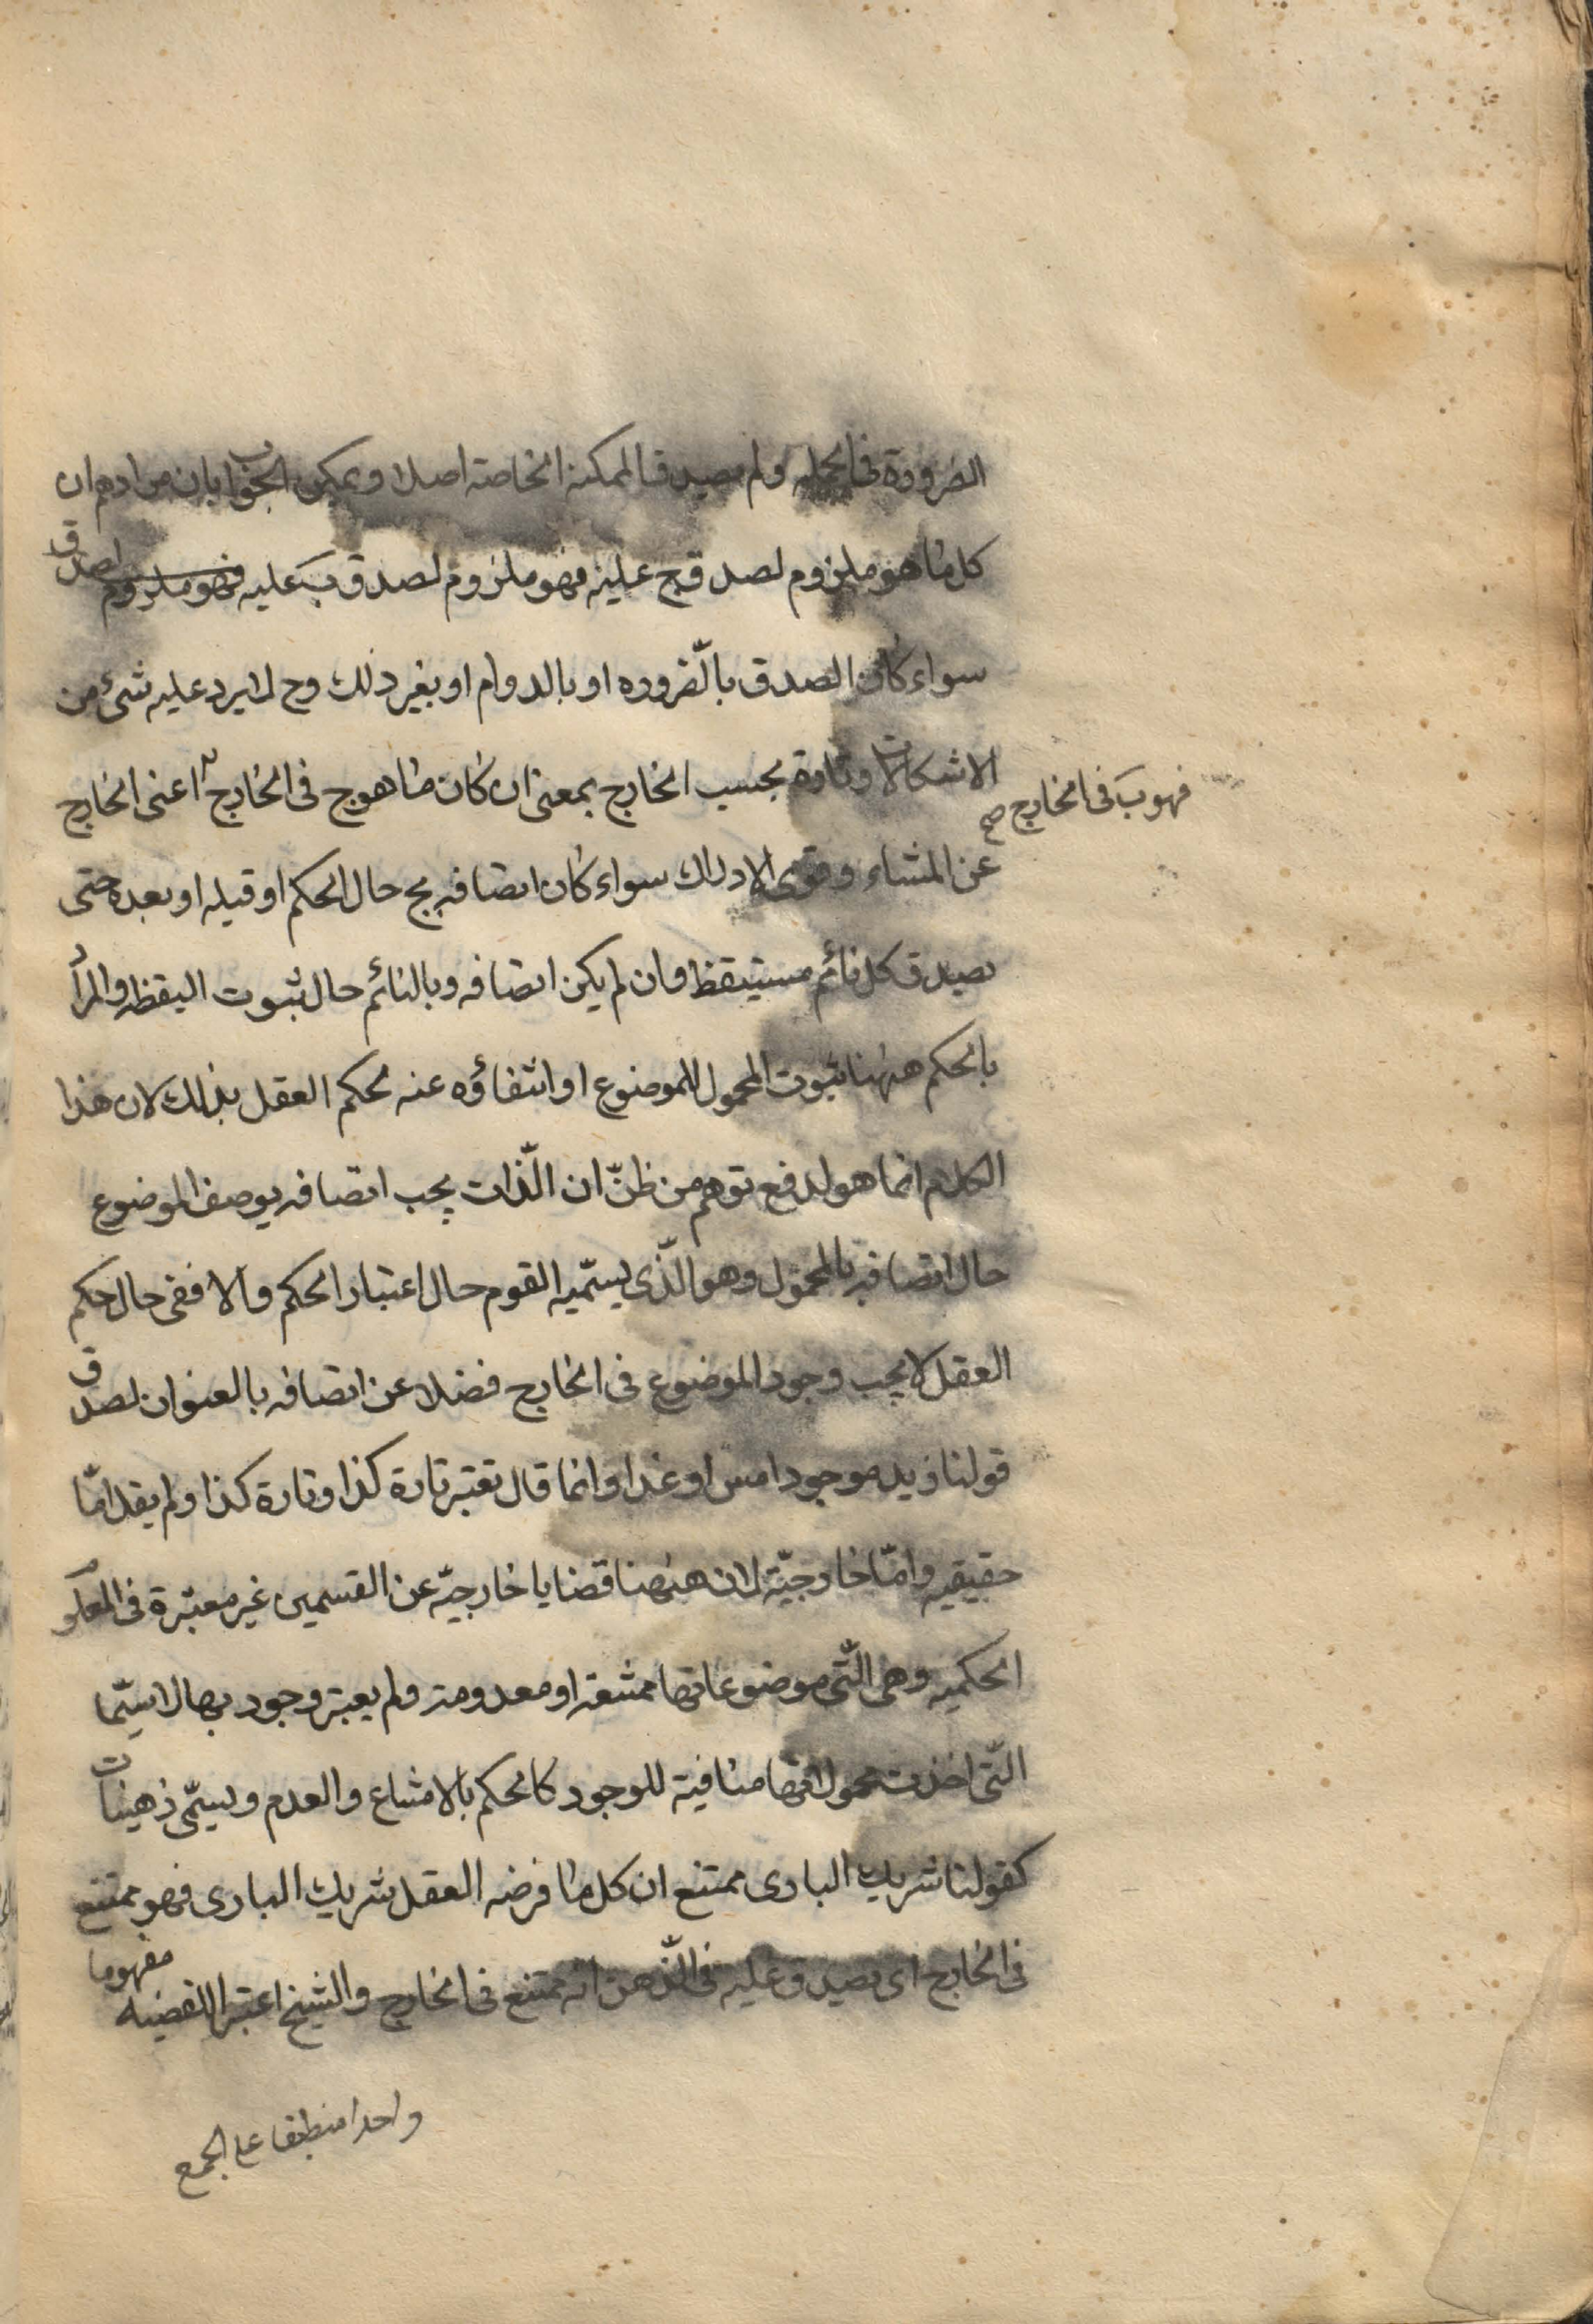 الضرورة فى الجمله ولم يصدق الممكنة الخاصة اصلا ويمكن الجواب بان مرادهم ان
كل ما هو ملزوم لصدق ج عليه فهو ملزوم لصدق ب عليه فهو ملزوم لصدق
سواء كان الصدق بالضروره او بالدوام او بغير ذلك وح لا يرد عليه شئ من
الاشكالات وتارة بحسب الخارج بمعنى ان كان ما هو ج فى الخارج اعنى الخارج
فهو ب فى الخارج صح
عن المشاء وقوى الادراك سواء كان اتصافه بج حال الحكم او قبله او بعده حتى
يصدق كل نائم مستيقظ وان لم يكن اتصافه وبالنائم حال ثبوت اليقظه والمراد
بالحكم هيهنا ثبوت المحمول للموضوع او انتفاؤه عنه محكم العقل بذلك لان هذا
الكلام انما هو لدفع توهم من ظنّ ان الذّات يجب اتصافه بوصف الموضوع
حال اتصافه بالمحمول وهو الذّى يسمّيه القوم حال اعتبار الحكم والا ففى حال حكم
العقل لا يجب وجود الموضوع فى الخارج فضلا عن اتصافه بالعنوان لصدق
قولنا زيد موجود امس او غدا وانما قال تعتبر تارة كذا وتارة كذا ولم يقل امّا
حقيقيه وامّا خارجيّة لان هيهنا قضايا خارجيّه عن القسمين غير معتبرة فى العلو
الحكميه وهى التّى موضوعاتها ممتنعة او معدومة ولم يعتبر وجود بها لا سيّما
التّى اخذت محمولاتها منافية للوجود كالحكم بالامتناع والعدم ويسمّى ذهينات
كقولنا شريك البارى ممتنع ان كل ما فرضه العقل شريك البارى فهو ممتنع
فى الخارج اى يصدق عليه فى الذّهن انه ممتنع فى الخارج والشيخ اعتبر للقضيه مفهوما
واحدا منطبقا على الجمع